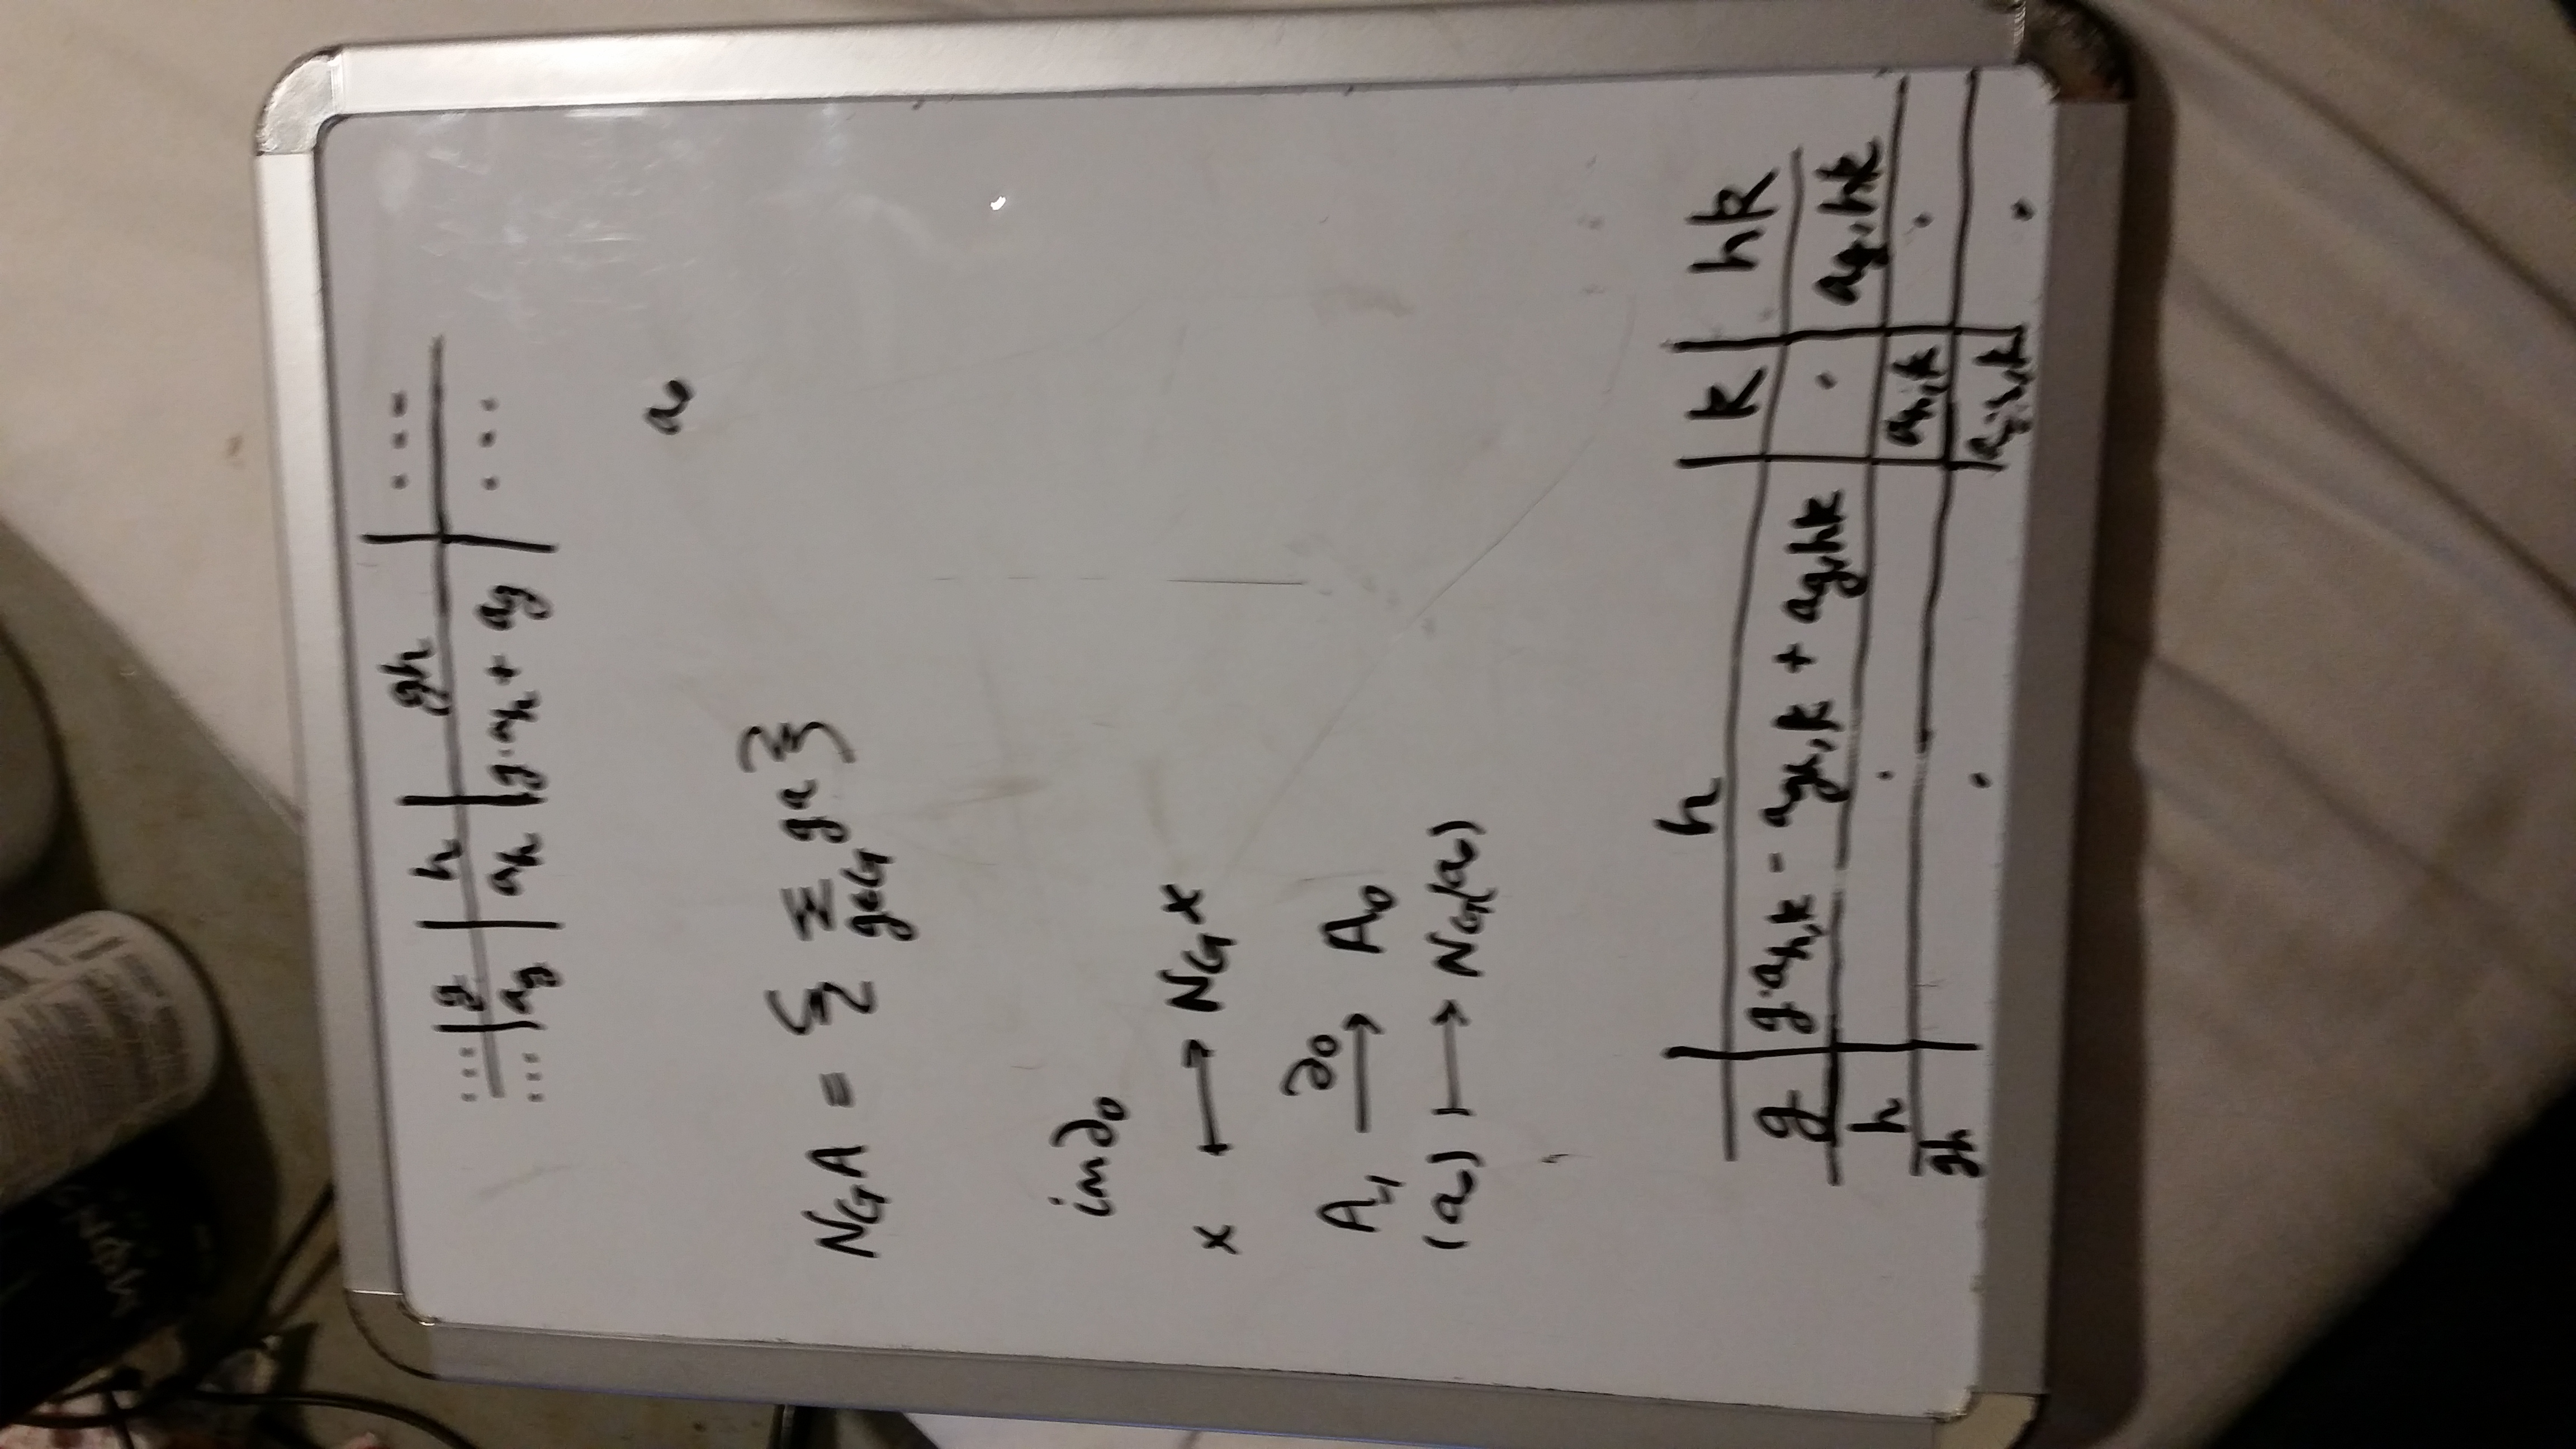 MON
... | g | h | gh | ...
... | a_g | a_h | g·a_h + a_g | ...
a_0
N_G A = { Σ_{g∈G} ga }
im ∂_0
x ↦ N_G x
A_{-1} —∂_0→ A_0
(a_0) ↦ N_G(a_0)
| h | k | hk
g | g·a_{h,k} - a_{gh,k} + a_{g,hk} | · | a_{g,hk}
h | · | a_{h,k} | ·
gh | · | a_{gh,k} | ·